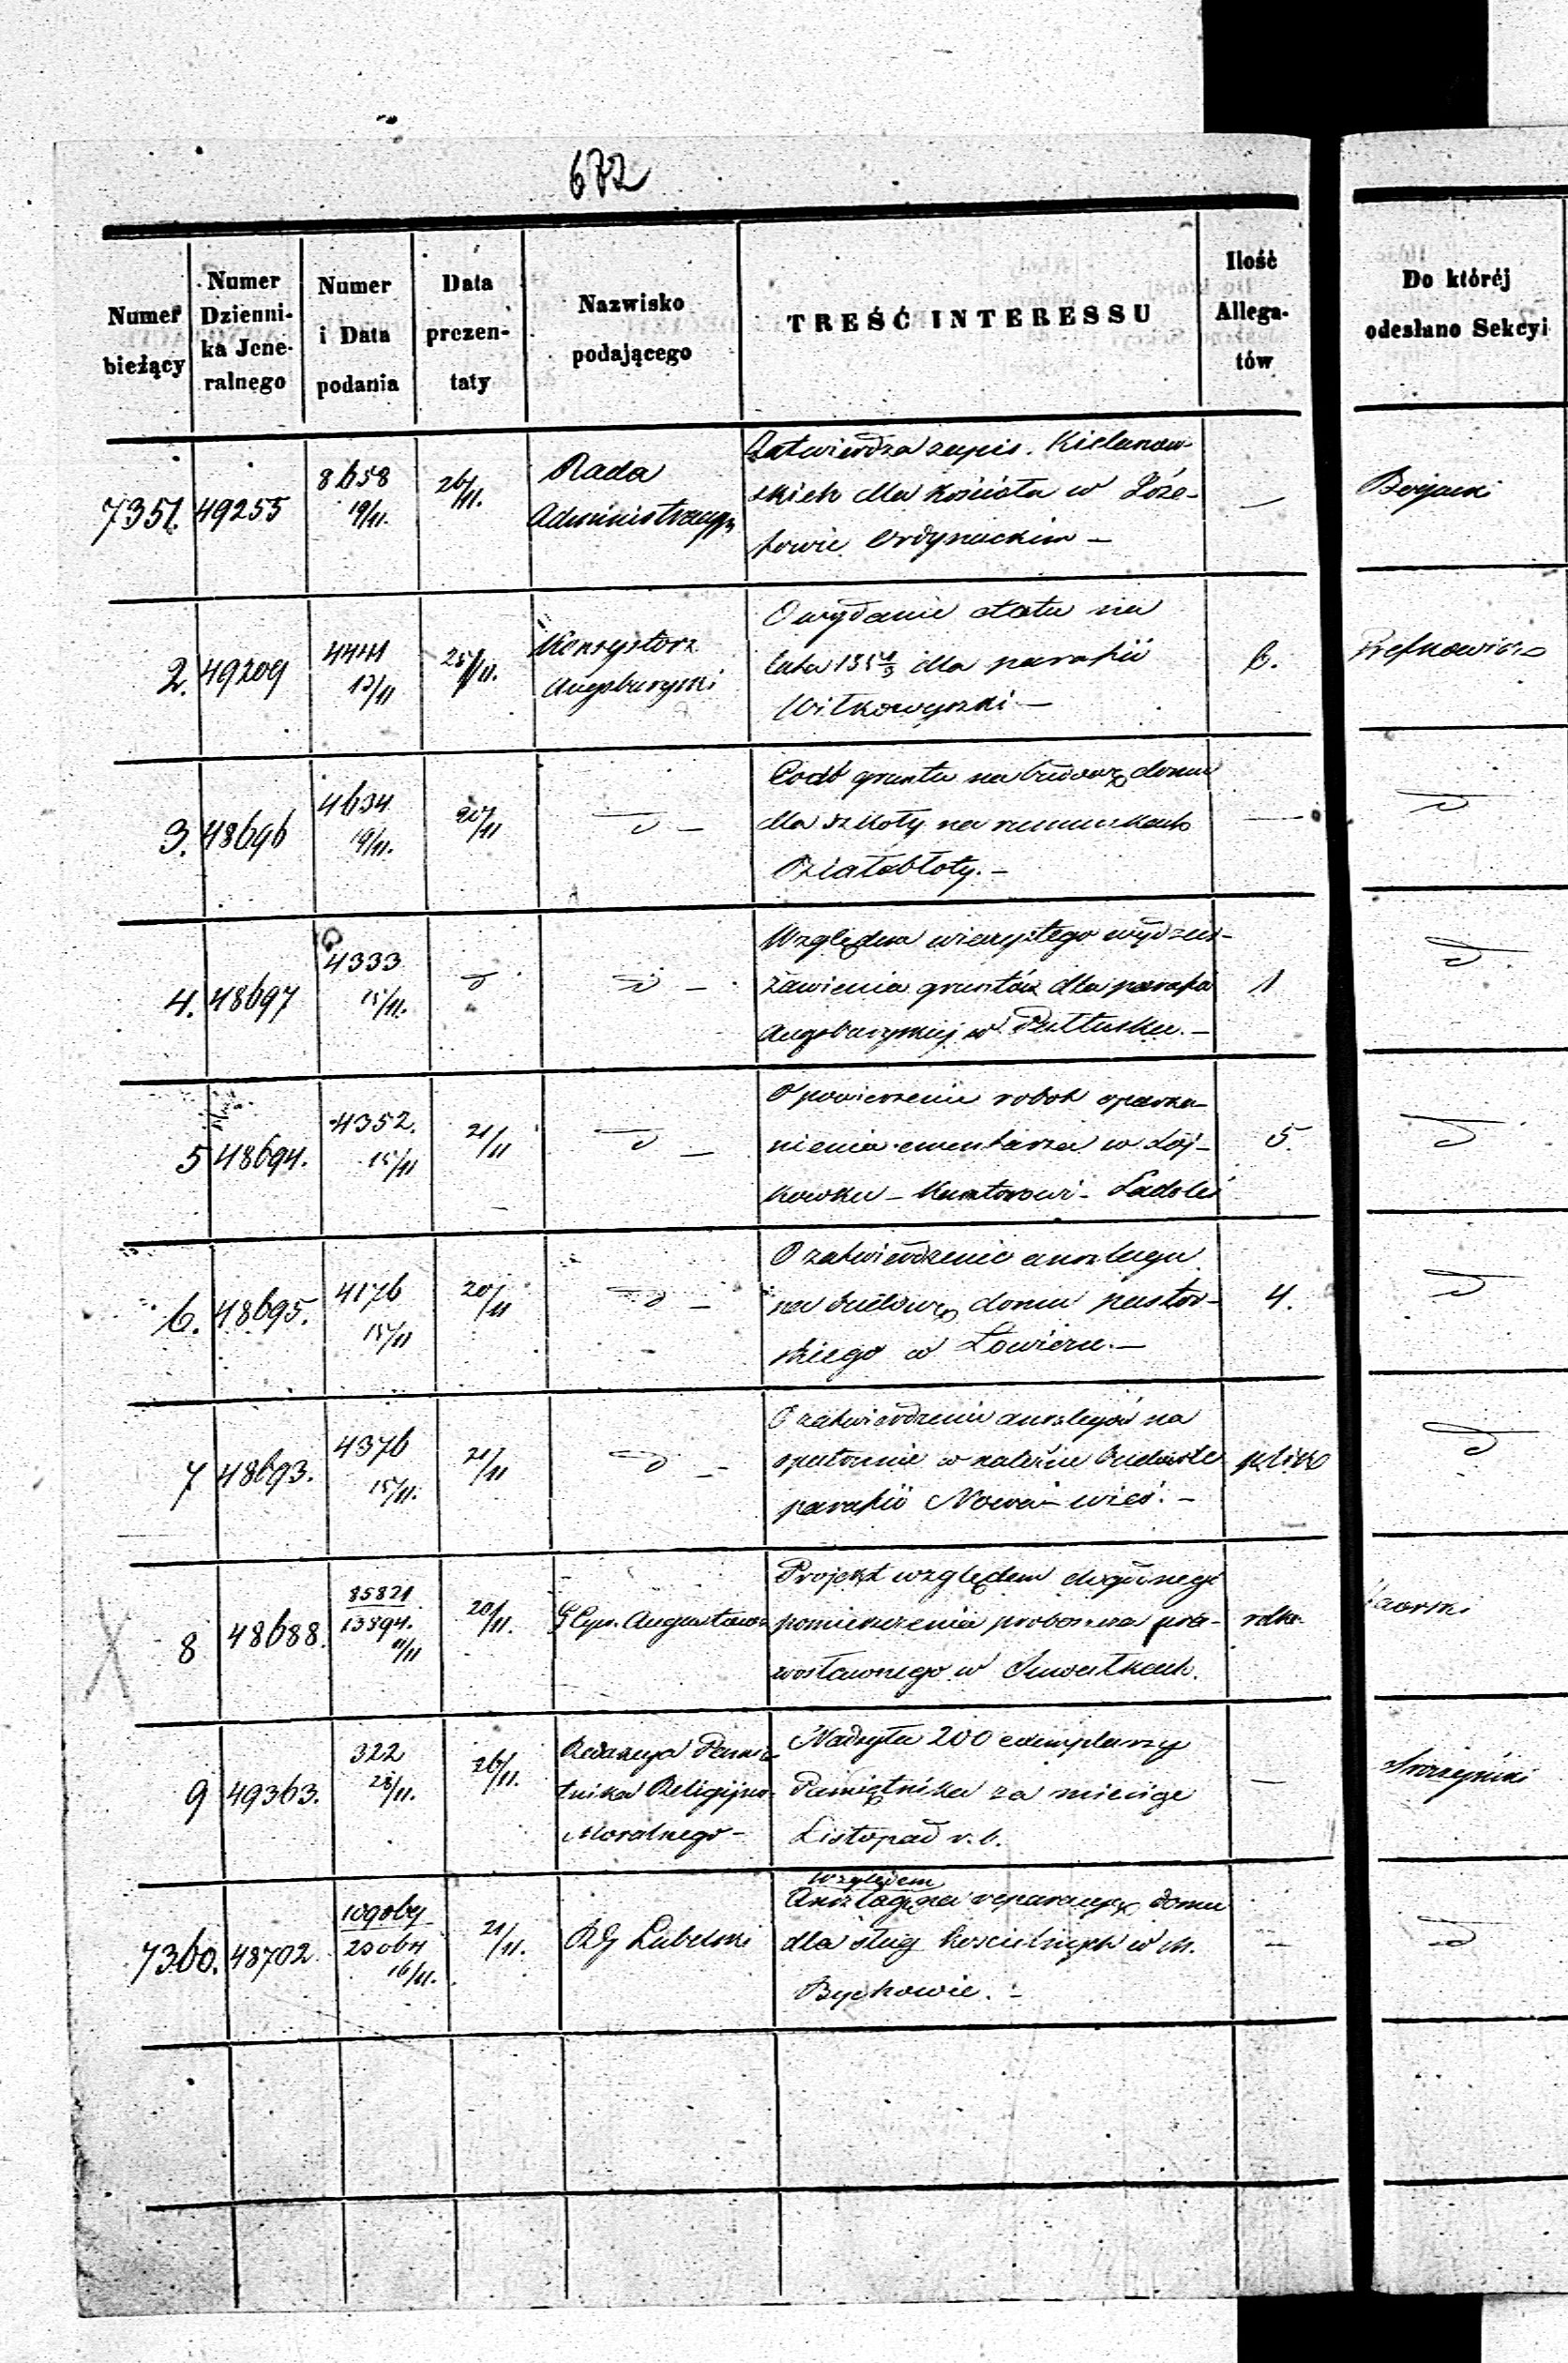 682
Numer bieżący
Numer Dzienni-ka Jene-ralnego
Numer i Data podania
Data prezen-taty
Nazwisko podającego
TREŚĆ INTERESSU
Ilość Allega-tów
Do któréj odesłano Sekcyi
7351. 49255 8658 19/11. 26/11. Rada
Administracyjn
Zatwierdza zapis. Kielanow-
skich dla kościoła w Józe-
fowie Ordynackim –
2. 49209 4441 13/11 25/11. Konsystorz
Augsburgski
O wydanie etatu na
lata dla parafii
Wiłkowyszki – 6.
3. 48696 4634 19/11. 20/11 d –
grantu na budowę domu
dla szkoły na rumunkach
Białebłoty. –
d
4. 48697 4333 15/11. d d –
Względem wieczystego wydzier-
żawienia gruntów dla parafii
Augsburgskiej w Pułtusku. – 1
d
5 48694. 4352. 15/11 21/11 d –
O powierzenie robot oparka-
nienia cmentarza w Łój-
kowku – Kantorowi – 5.
d
6. 48695. 4176 15/11 20/11 d –
O zatwierdzenie anszlagu
na budowę domu pastor-
skiego w Łowiczu. – 4.
d
7 48693. 4376 15/11. 21/11 d –
O zatwierdzenie anszlagów na
opatrzenie w należne budowle
parafii Nowa-wieś. – plik
d
8 48688. 85821
13394. 20/11. Augustows
Projekt względem dogodnego
pomieszczenia proboszcza pra-
wosławnego w Suwałkach. rolka
9 49363. 322 28/11. 26/11. Redakcya Pamię-
tnika Religijno-
Moralnego –
Nadsyła 200 exemplarzy
Pamiętnika za miesiąc
Listopad r. b. –
7360. 48702 16/11. 21/11. RG Lubelski
Względem
Anszlagu na reparacyę domu
dla sług kościelnych w m.
Bychowie. –
d